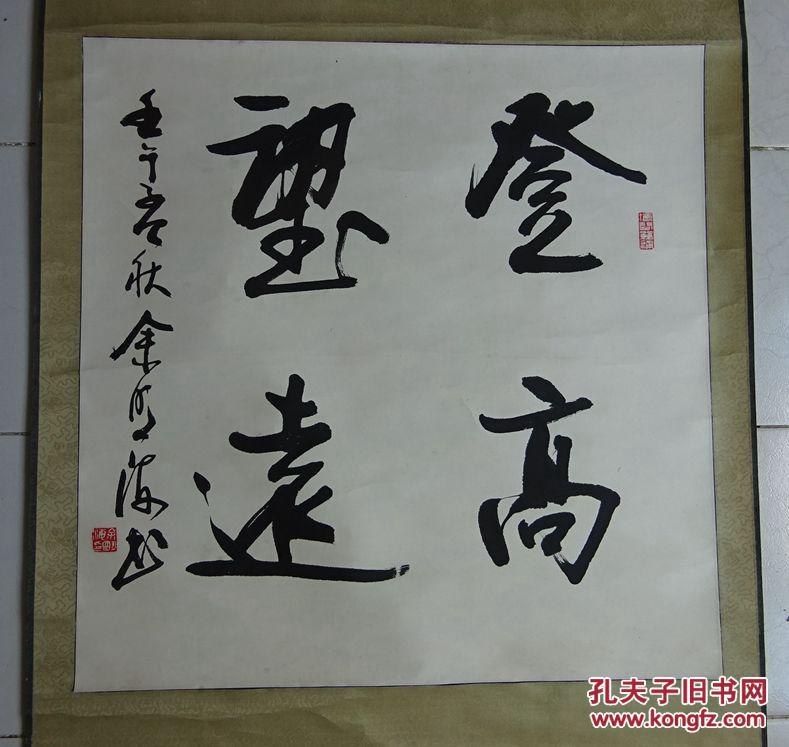 登高
望遠
壬午春秋余明海书
孔夫子旧书网
www.kongfz.com